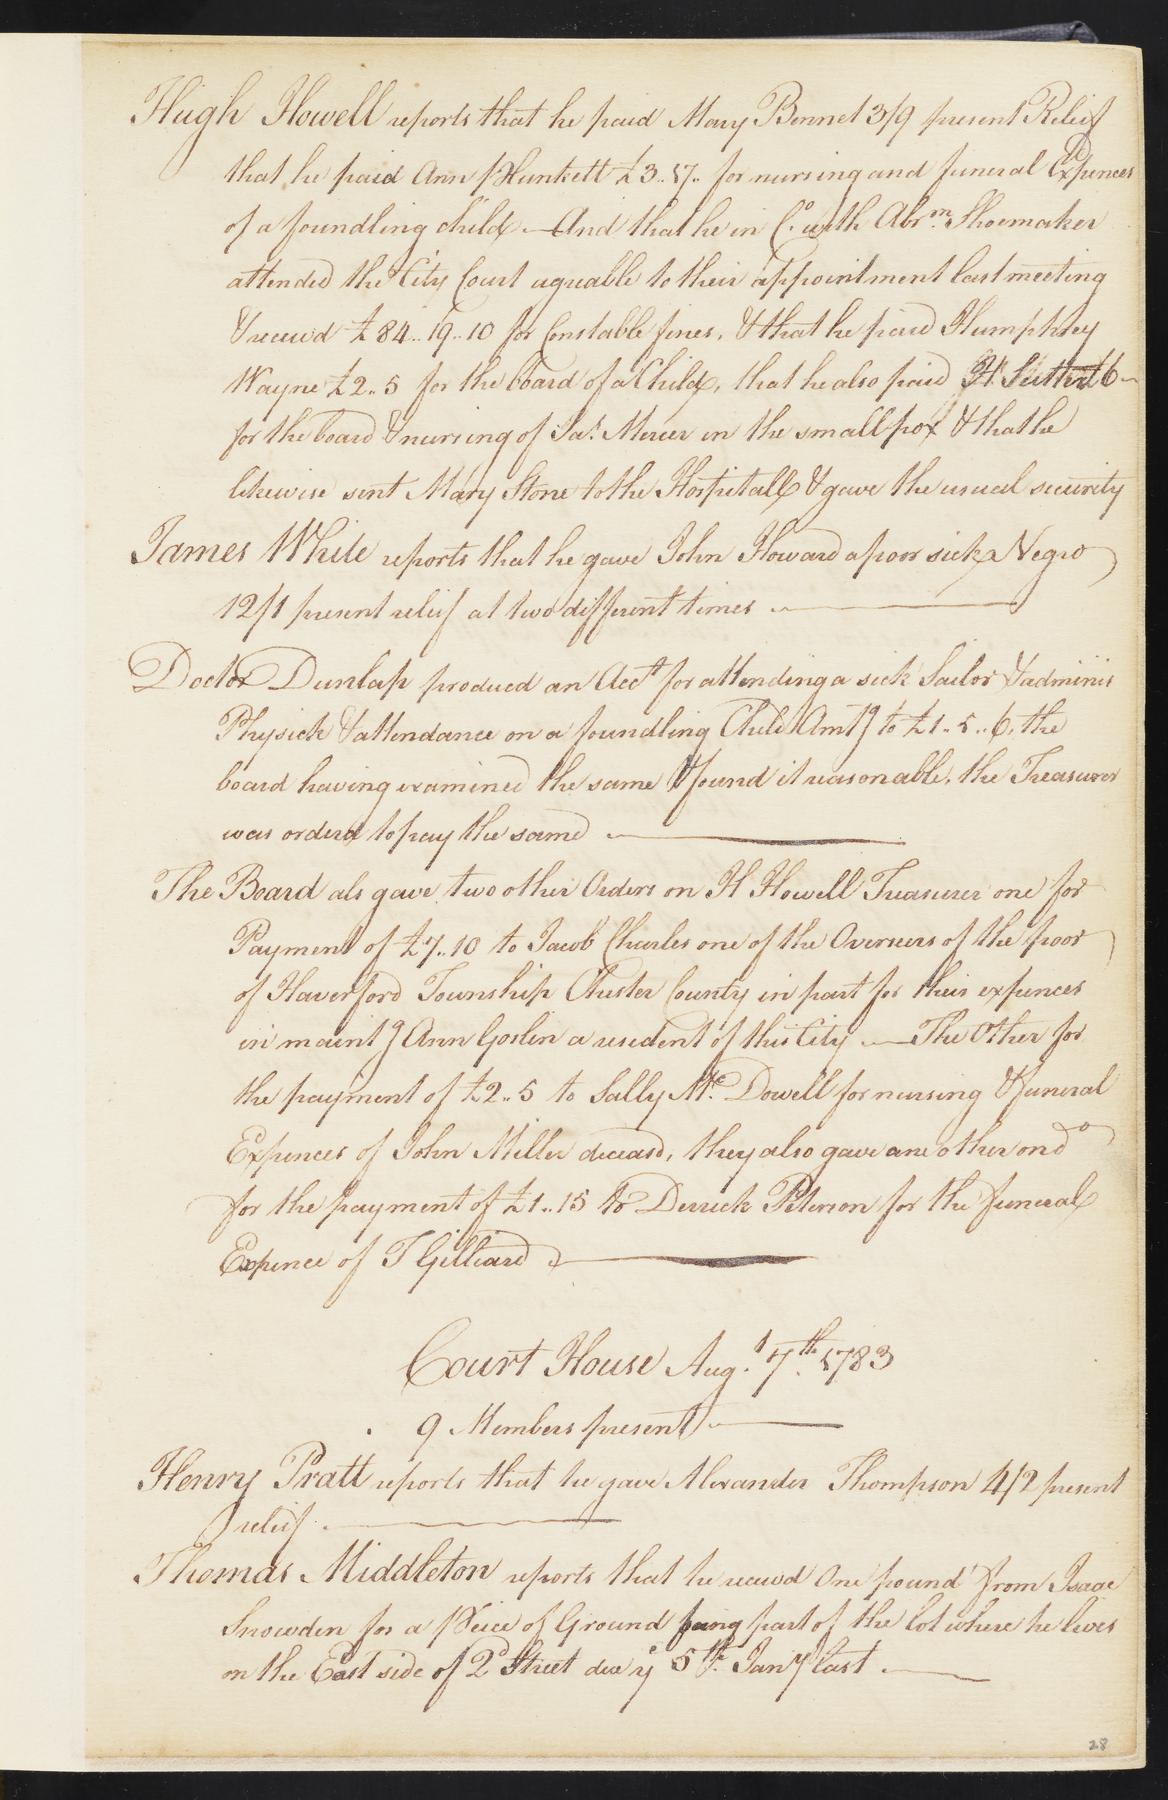 Hugh Howell reports that he paid Mary Bennet 3/9 present Relief
that he paid Ann Plunkett £3..17.. for nursing and funeral Expences
of a foundling child — And that he in Co. with Abrm. Shoemaker
attended the City Court agreable to their appointment last meeting
& receivd £84..19..10 for Constable fines, & that he paid Humphrey
Wayne £2..5 for the board of a Child, that he also paid H.
for the board & nursing of Jas. Mercer in the small pox & that he
likewise sent Mary Stone to the Hospitall & gave the usual security
James White reports that he gave John Howard a poor sick Negro
12/1 present relief at two different times
Doctor Dunlap produced an Acct for attending a sick Sailor & adminis
Physick & attendance on a foundling Child Amtg to £1..5..6, the
board having examined the same & found it reasonable, the Treasurer
was orderd to pay the same
The Board als gave two other Orders on H Howell Treasurer one for
Payment of £7..10 to Jacob Charles one of the Overseers of the poor
of Haverford Township Chester County in part for their expences
in maintg Ann Goslin a resident of this City — The Other for
the payment of £2..5 to Sally Mc. Dowell for nursing & funeral
Expences of John Miller deceasd, they also gave one other ord
for the payment of £1..15 to Derrick Peterson for the funeral
Expence of T Gilliard
Court House Augt. 7th. 1783
9 Members present
Henry Pratt reports that he gave Alexander Thompson 4/2 present
relief
Thomas Middleton reports that he receivd One pound from Isaac
Snowden for a Peice of Ground being part of the lot where he lives
on the East side of 2d Street due ye 5th. Jany last
28